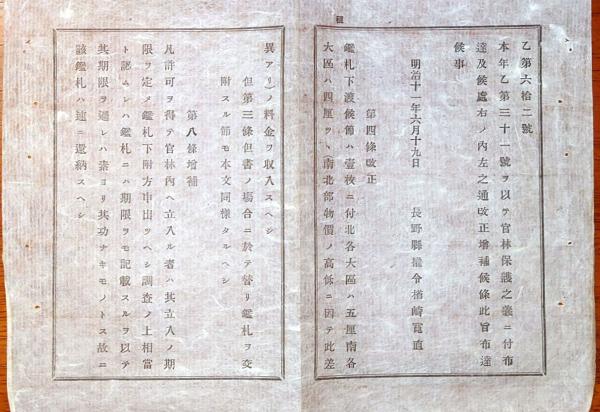 乙第六拾二號
本年乙第三十一號ヲ以テ官林保護之義ニ付布
達及候處右ノ內左之通改正增補候條此旨布達
候事
明治十一年六月十九日　長野縣權令楢崎寬直
第四條改正
鑑札下渡候節ハ壹枚ニ付北各大區ハ五厘南各
大區ハ四厘ツヽ南北部物價ノ高低ニ因テ此差
異アリノ料金ヲ收入スヘシ
但第三條但書ノ場合ニ於テ替リ鑑札ヲ交
附スル節モ本文同樣タルヘシ
第八條增補
凡許可ヲ得テ官林內ヘ立入ル者ハ其立入ノ期
限ヲ定メ鑑札下附方申出ツヘシ調査ノ上相當
ト認ムレハ鑑札ニハ期限ヲモ記載スルヲ以テ
其期限ヲ過レハ素ヨリ其功ナキモノトス故ニ
該鑑札ハ速ニ還納スヘシ